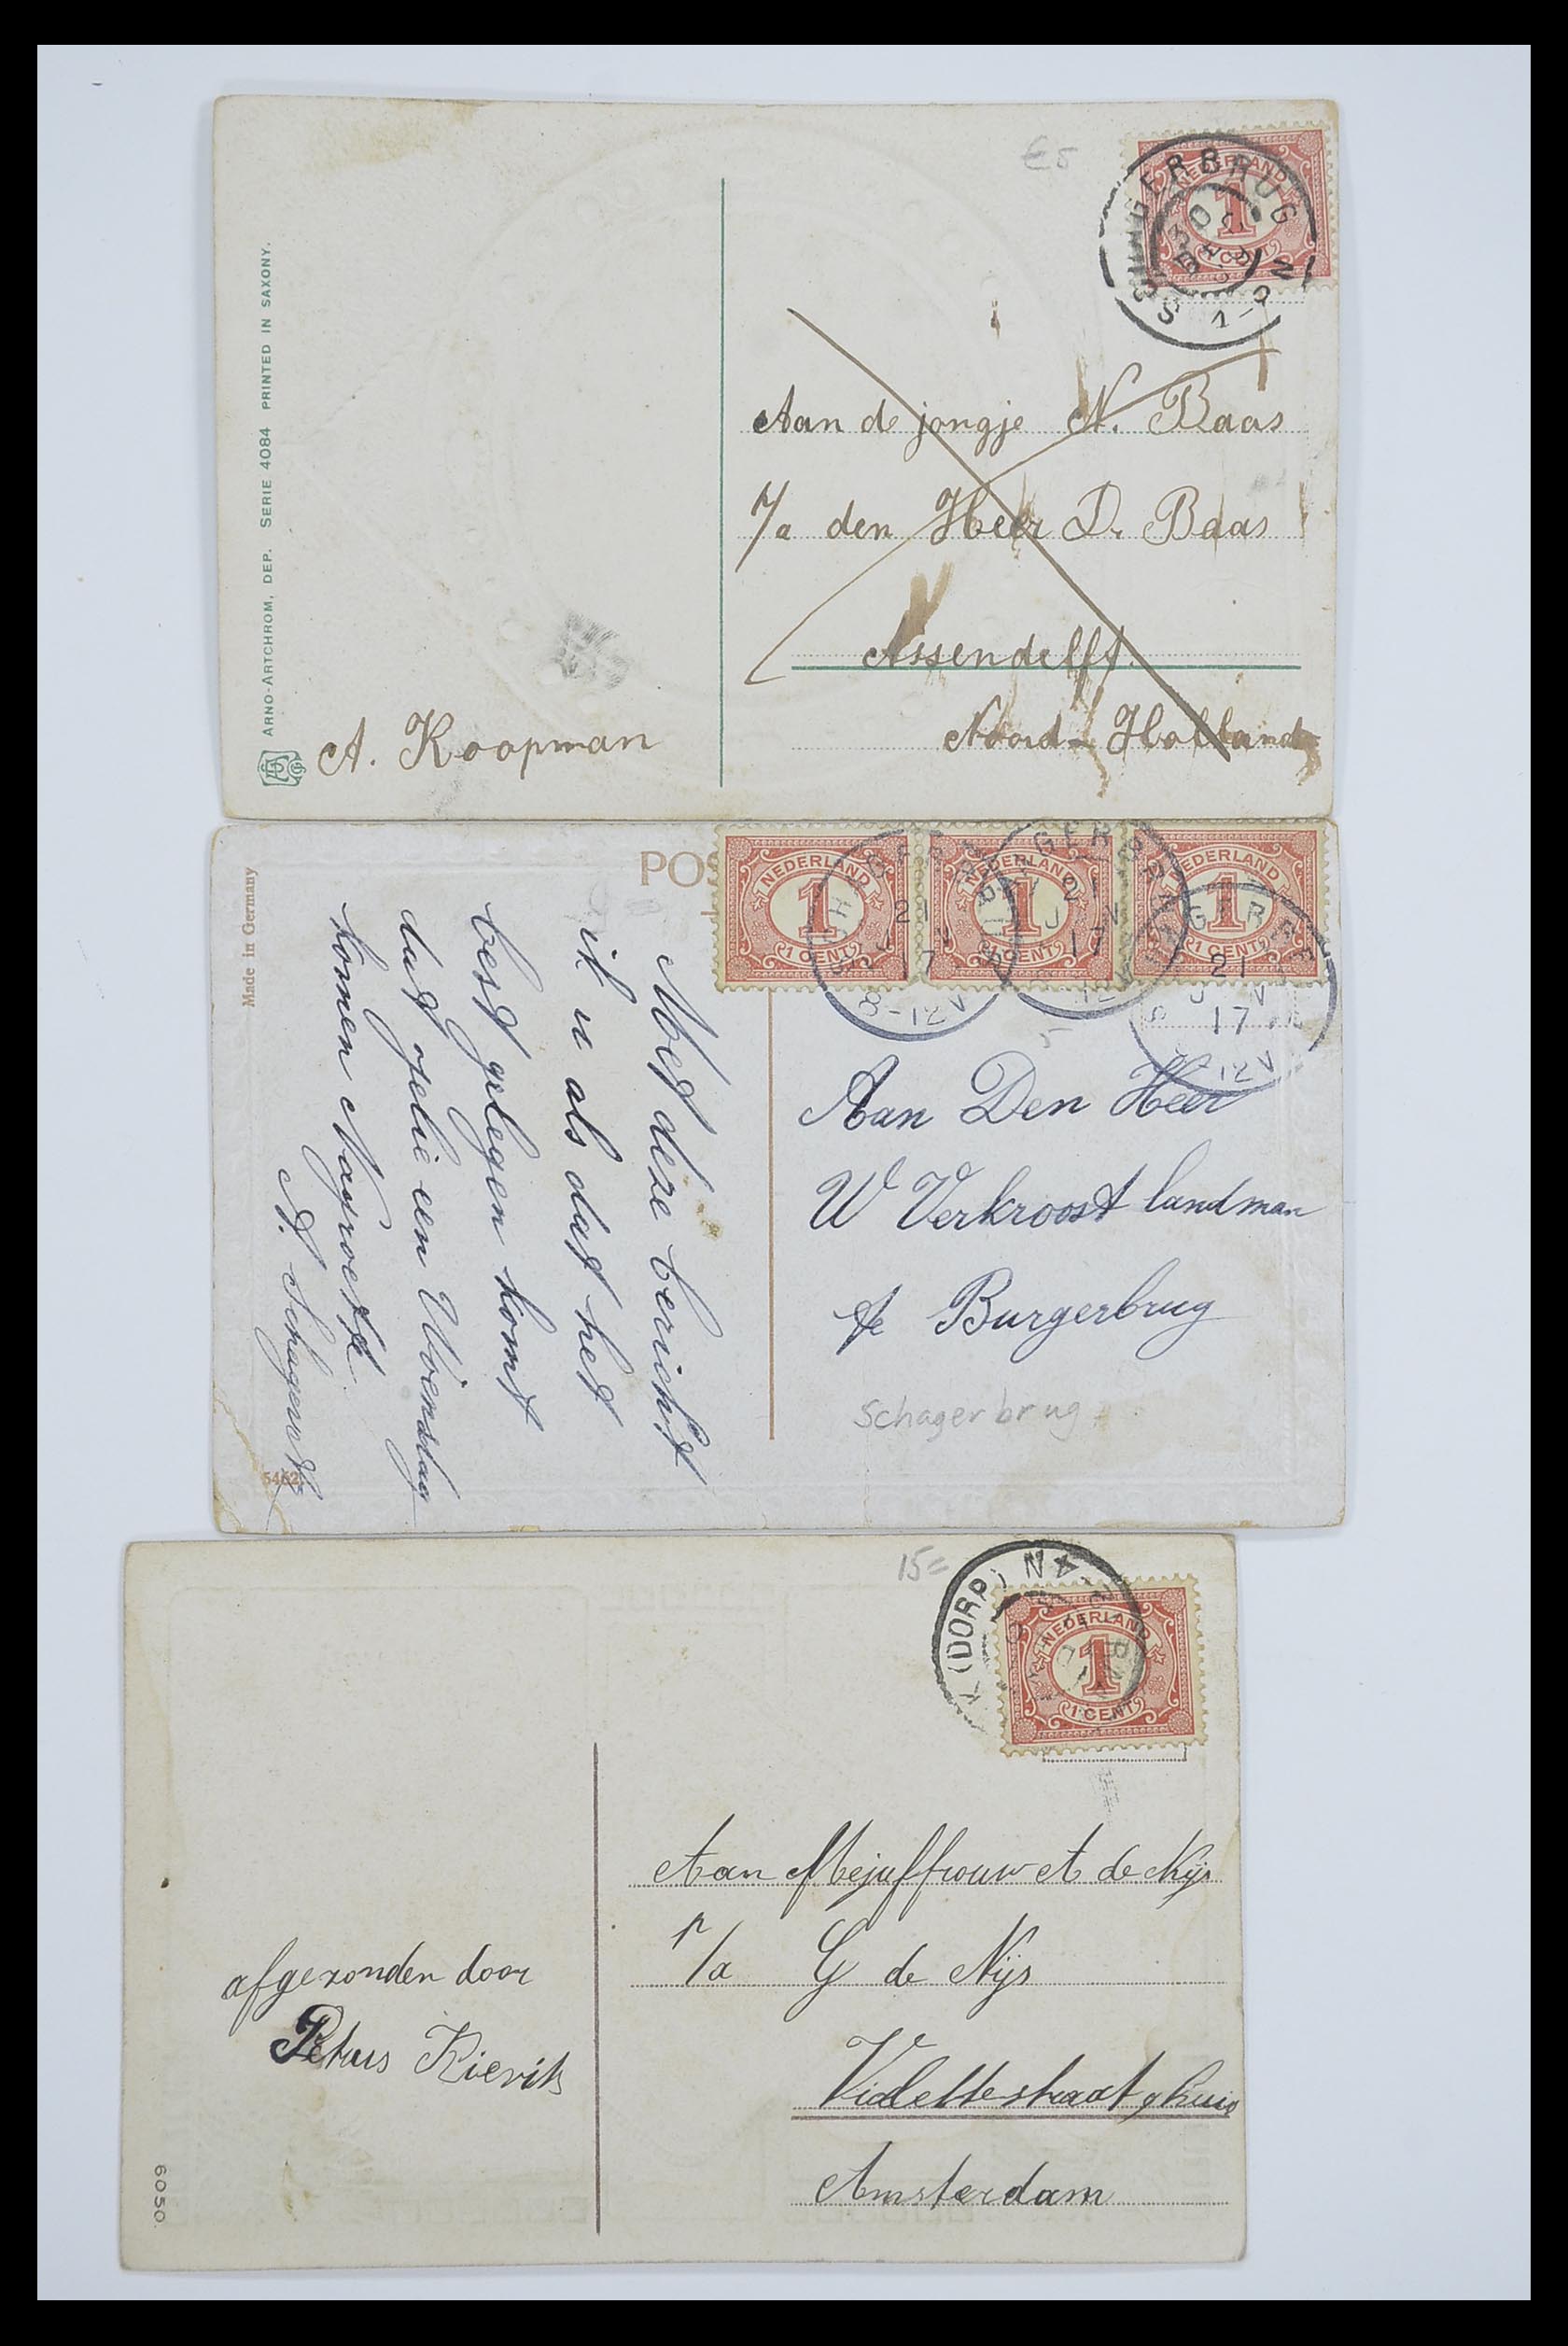 €5
NEDERLAND
1
CENT
SCHAGERBRUG
Aan de jongje N. Baas
p/a den Heer D. Baas
Assendelft.
Noord-Holland
A. Koopman
ARNO-ARTCHROM, DEP. SERIE 4084 PRINTED IN SAXONY.
Made in Germany
POS
NEDERLAND
1
1 CENT
NEDERLAND
1
1 CENT
NEDERLAND
1
1 CENT
21
17
8-12V
21
17
21
17
12V
Met deze bericht
ik u als dat het
best gelegen komt
dat jelie een Woensdag
komen
Aan Den Heer
W Verkroost landman
te Burgerbrug
Schagerbrug
5462
15=
(DORP)
NEDERLAND
1
1 CENT
Aan Mejuffrouw A de Nijs
p/a G de Nijs
Violettestraat
Amsterdam
afgezonden door
Petrus Kievit
6050.